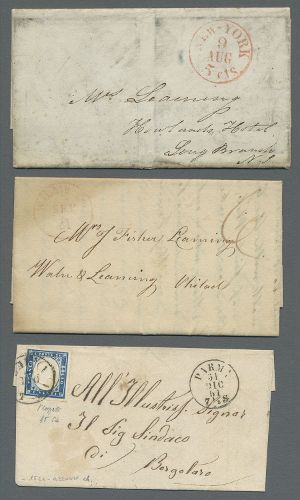 NEW-YORK
9
AUG
5 cts.
Mrs Leaming
Howlands Hotel
Long Branch
N.J.
Mrs J Fisher Leaming
Waln & Leaming Philad
6
PARMA
31
DIC
61
All' Illustriss. Signor
Il Sig Sindaco
di
Borgotaro